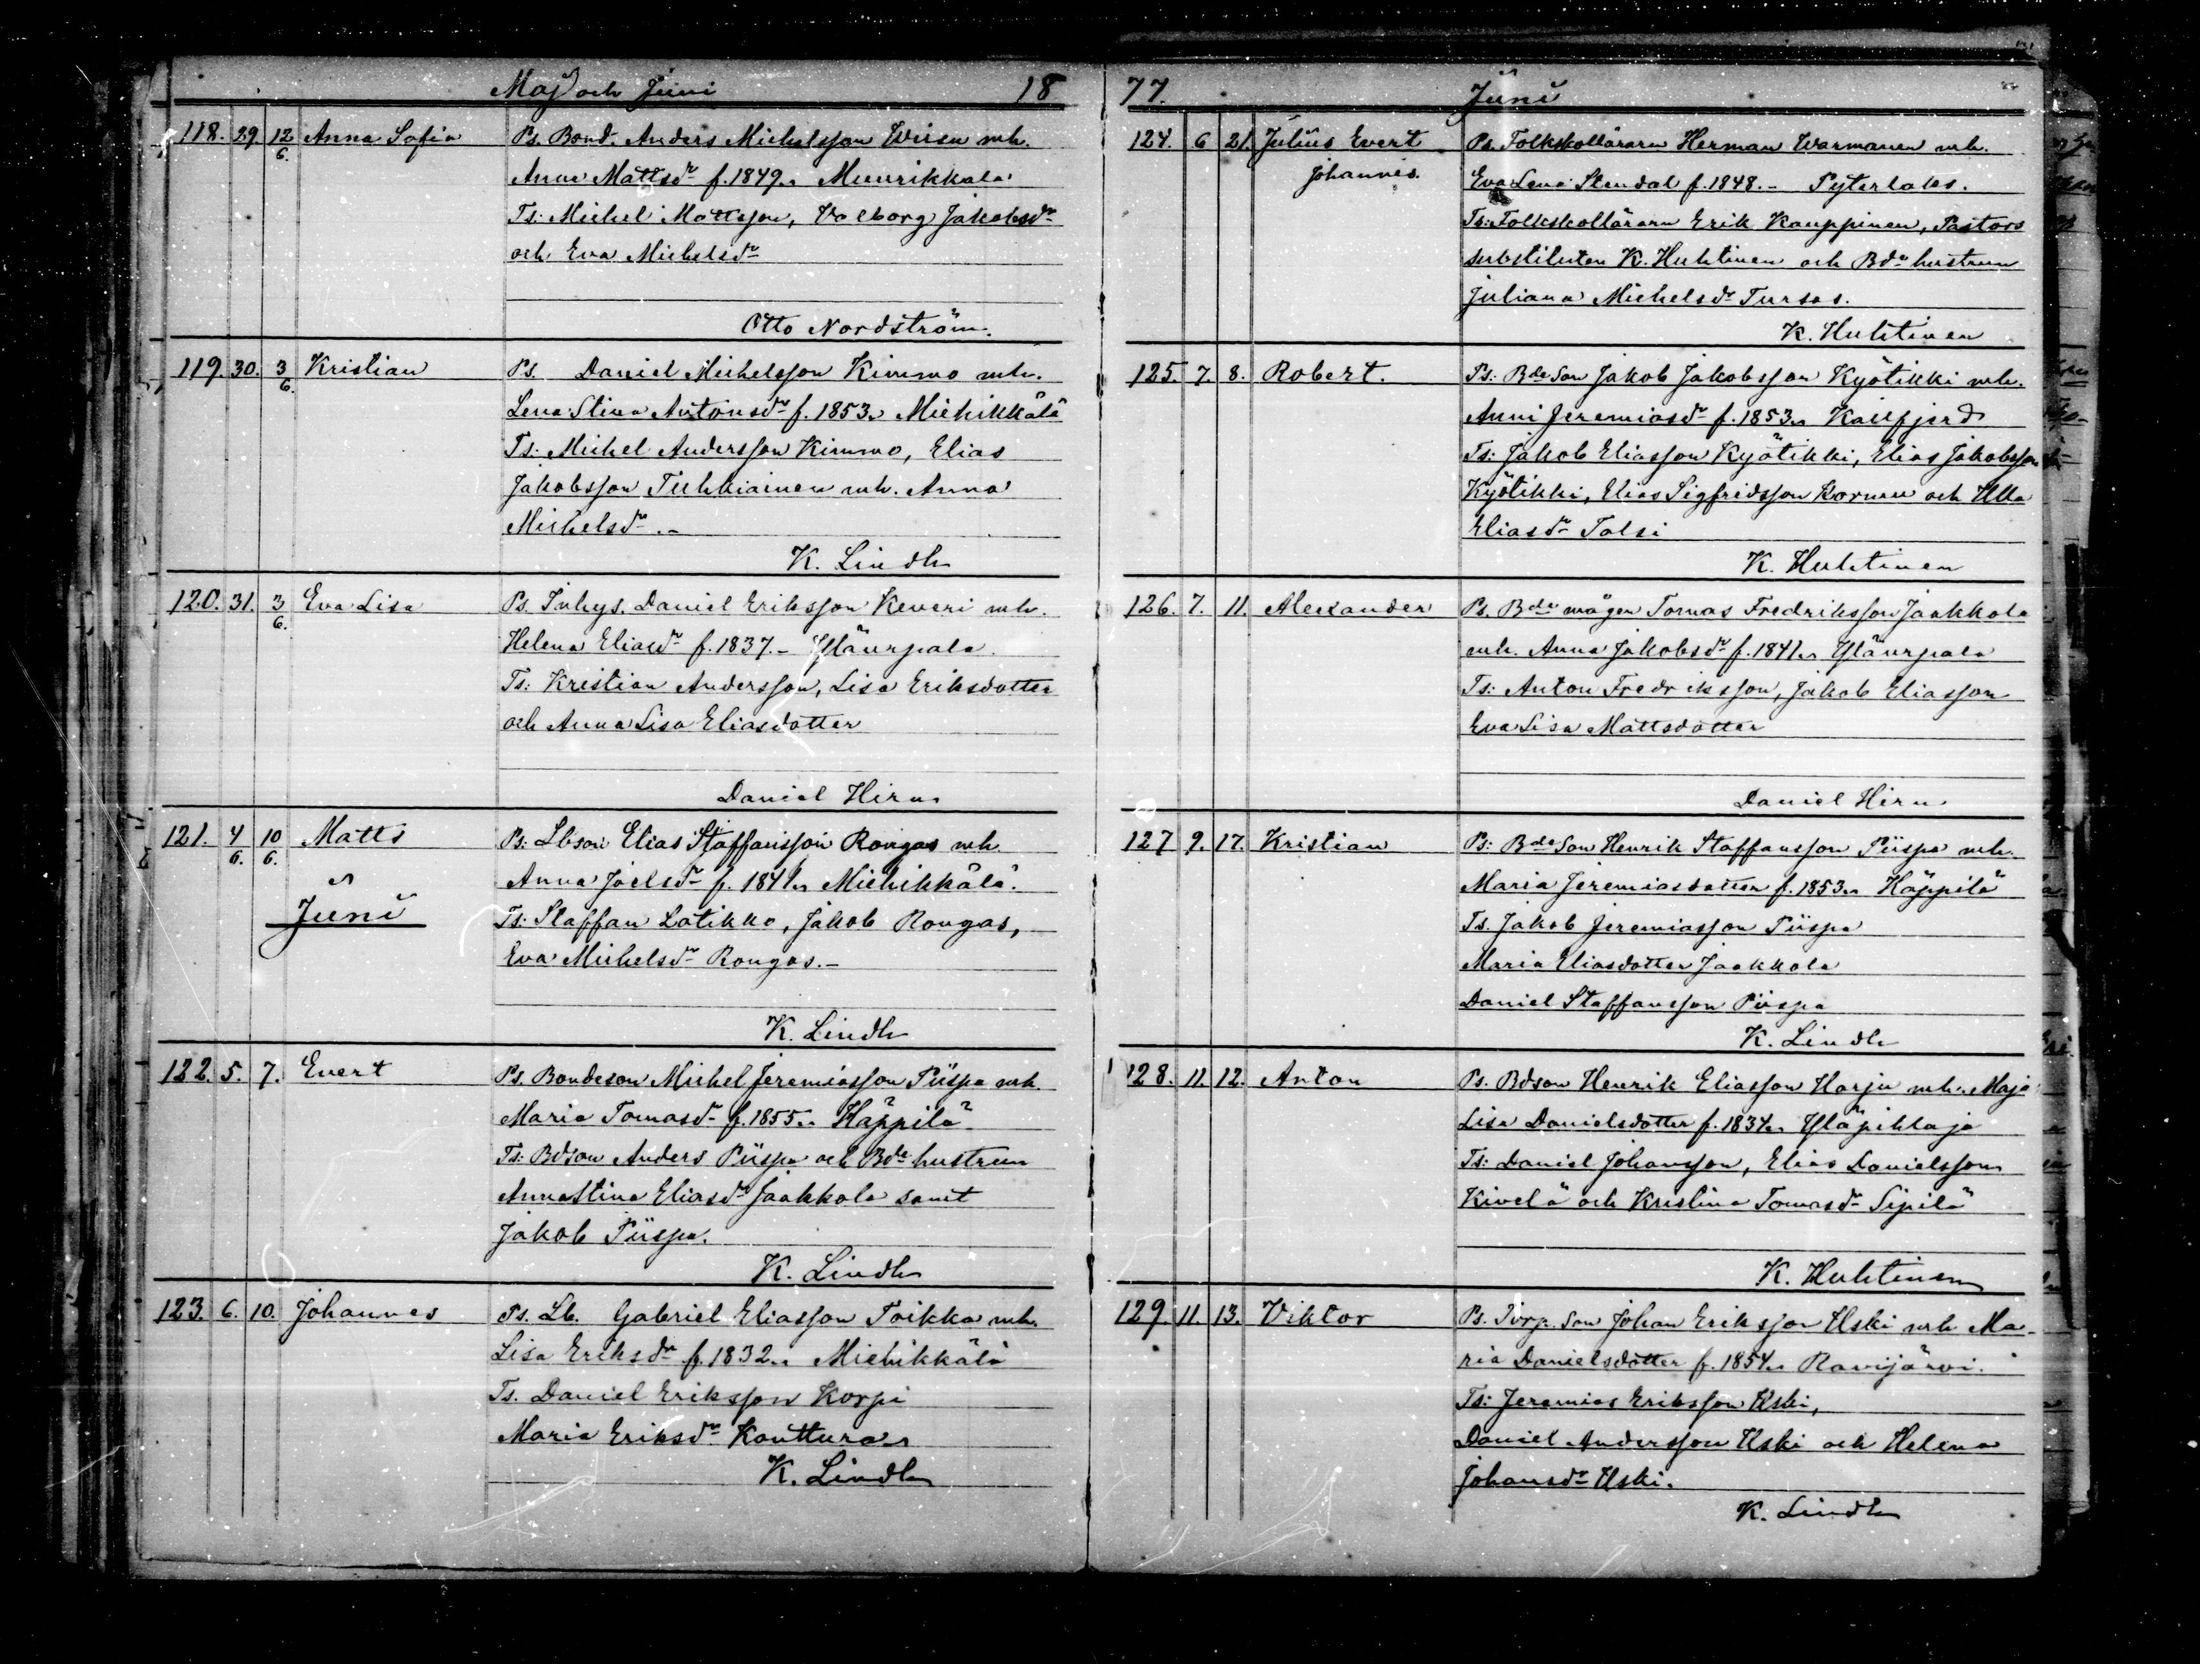 Maj och Juni 18
118. 29. 12/6. Anna Sofia Ps. Bond. Anders Michelsson Wirsu mh.
Anna Mattsdr f. 1849. Muurikkala
Ts: Michel Mattsson, Valborg Jakobsdr
och Eva Michelsdr
Otto Nordström.
119. 30. 3/6. Kristian Ps. Daniel Michelsson Kimmo mh.
Lena Stina Antonsdr f. 1853. Miehikkälä
Ts: Michel Andersson Kimmo, Elias
Jakobsson Tuhkiainen mh. Anna
Michelsdr.-
K. Lindh
120. 31. 3/6. Eva Lisa Ps. Inhys. Daniel Eriksson Keveri mh.
Helena Eliasdr f. 1837.- Yläurpala.
Ts: Kristian Andersson, Lisa Eriksdotter
och Anna Lisa Eliasdotter
Daniel Hirn
121. 4/6. 10/6. Matts Ps: Lbson Elias Staffansson Rongas mh.
Anna Joelsdr f. 1841. Miehikkälä.
Juni Ts: Staffan Lötikko, Jakob Rongas,
Eva Michelsdr Rongas.-
K. Lindh
122. 5. 7. Evert Ps. Bondeson Michel Jeremiasson Piispa mh.
Maria Tomasdr f. 1855. Häppilä
Ts: Bdson Anders Piispa och Bde hustrun
Annastina Eliasdr Jaakkola samt
Jakob Piispa.
K. Lindh
123. 6. 10. Johannes Ps. Lb. Gabriel Eliasson Toikka mh.
Lisa Eriksdr f. 1832. Miehikkälä
Ts. Daniel Eriksson Korpi
Maria Eriksdr Kouttura
K. Lindh
77. Juni
124. 6 21. Julius Evert Ps. Folkskolläraren Herman Warmanen mh.
Johannes. Eva Lena Stendal f. 1848.- Pyterlaks.
Ts: Folkskolläraren Erik Kauppinen, Pastors
substituten K. Huhtinen och Bde hustrun
Juliana Michelsdr Tursas.
K. Huhtinen
125. 7. 8. Robert. Ps: Bde Son Jakob Jakobsson Kyötikki mh.
Anni Jeremiasdr f. 1853. Kallfjerd
Ts: Jakob Eliasson Kyötikki, Elias Jakobsson
Kyötikki, Elias Sigfridsson Kornu och Ulla
Eliasdr Talsi
K. Huhtinen
126. 7. 11. Alexander Ps. Bde mågen Tomas Fredriksson Jaakkola
mh. Anna Jakobsdr f. 1841. Yläurpala
Ts: Anton Fredriksson, Jakob Eliasson
Eva Lisa Mattsdotter
Daniel Hirn
127 9. 17. Kristian Ps: Bde Son Henrik Staffansson Piispa mh.
Maria Jeremiasdotter f. 1853. Häppilä
Ts. Jakob Jeremiasson Piispa
Maria Eliasdotter Jaakkola
Daniel Staffansson Piispa
K. Lindh
128. 11. 12. Anton Ps. Bdson Henrik Eliasson Harju mh. Maja
Lisa Danielsdotter f. 1834. Yläpihlaja
Ts: Daniel Johansson, Elias Danielsson
Kivelä och Kristina Tomasdr Sipilä
K. Huhtinen
129. 11. 13. Viktor Ps. Torp. Son Johan Eriksson Uski mh Ma-
ria Danielsdotter f. 1854. Ravijärvi.
Ts: Jeremias Eriksson Uski,
Daniel Andersson Uski och Helena
Johansdr Uski.
K. Lindh